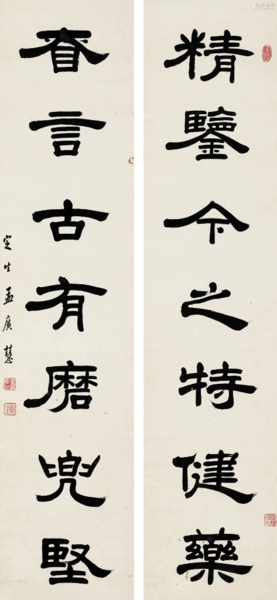 精鑒今之特健藥
眘言古有磨兜堅
定生孟廣慧